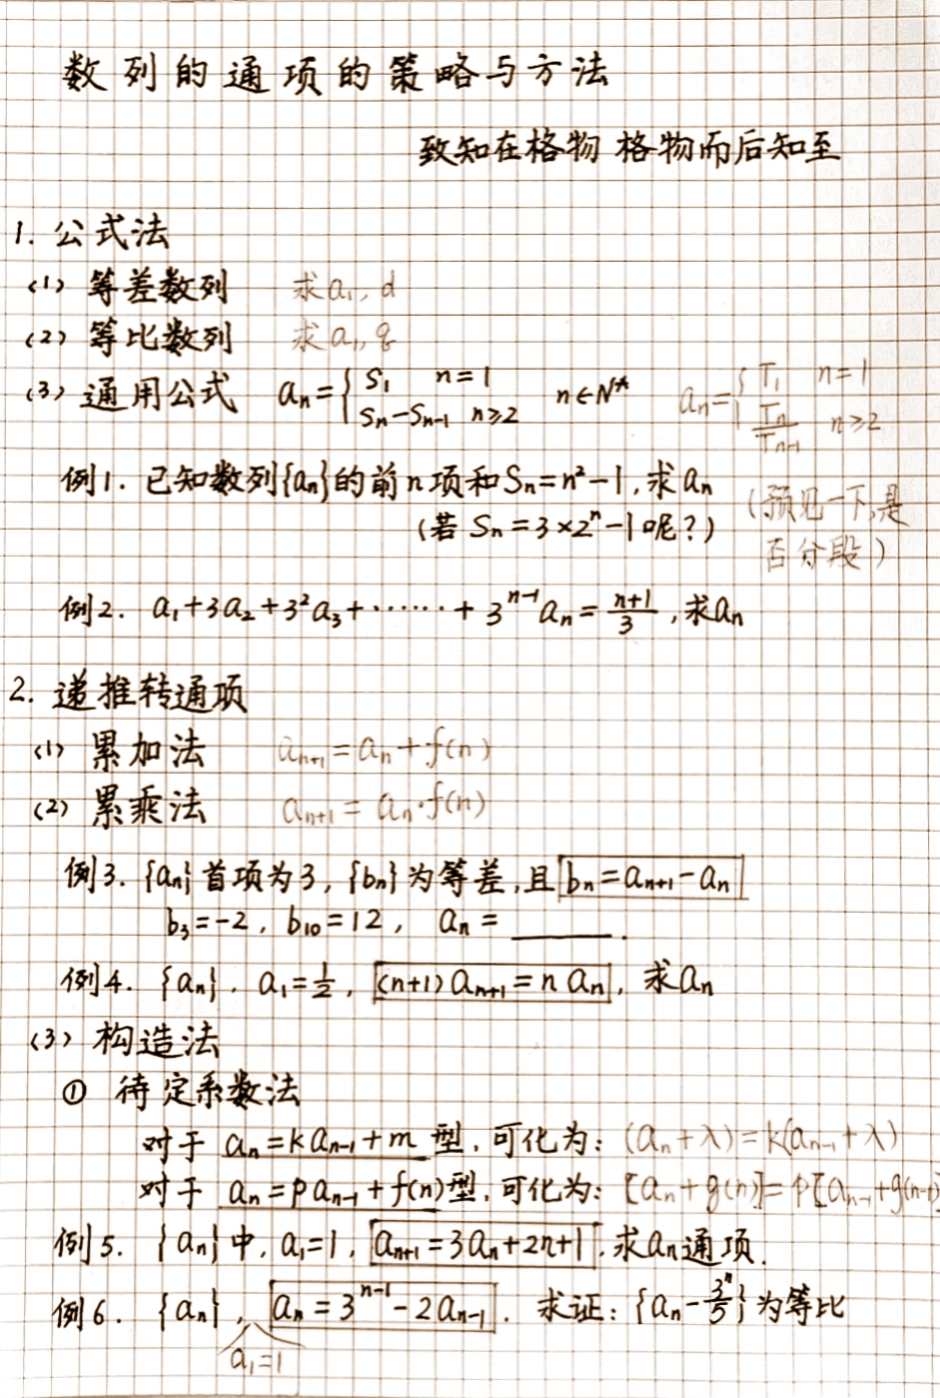 数列的通项的策略与方法
致知在格物 格物而后知至
1. 公式法
(1) 等差数列 求a₁, d
(2) 等比数列 求a₁, q
(3) 通用公式 aₙ={S₁ n=1 Sₙ-Sₙ₋₁ n≥2 n∈N* aₙ={T₁ n=1 Tₙ/Tₙ₋₁ n≥2
例1. 已知数列{aₙ}的前n项和Sₙ=n²-1,求aₙ
(若Sₙ=3×2ⁿ-1呢?) (预见一下,是
否分段)
例2. a₁+3a₂+3²a₃+……+3ⁿ⁻¹aₙ=(n+1)/3,求aₙ
2. 递推转通项
(1) 累加法 aₙ₊₁=aₙ+f(n)
(2) 累乘法 aₙ₊₁=aₙ·f(n)
例3. {aₙ}首项为3,{bₙ}为等差,且bₙ=aₙ₊₁-aₙ
b₃=-2, b₁₀=12, aₙ=______.
例4. {aₙ}, a₁=1/2, (n+1)aₙ₊₁=naₙ, 求aₙ
(3) 构造法
① 待定系数法
对于 aₙ=kaₙ₋₁+m 型,可化为: (aₙ+λ)=k(aₙ₋₁+λ)
对于 aₙ=paₙ₋₁+f(n)型,可化为: [aₙ+g(n)]=p[aₙ₋₁+g(n-1)]
例5. {aₙ}中, a₁=1, aₙ₊₁=3aₙ+2n+1,求aₙ通项.
例6. {aₙ}, aₙ=3ⁿ⁻¹-2aₙ₋₁. 求证:{aₙ-3ⁿ/5}为等比
a₁=1